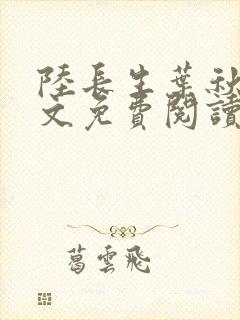 陸長生葉秋
文免費閱讀
葛雲飛